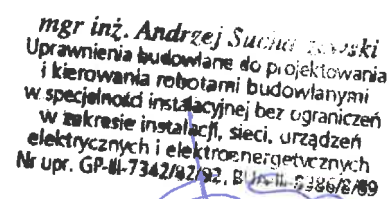 mgr inż. Andrzej
Uprawnienia budowlane do projektowania
i kierowania robotami budowlanymi
w specjalności instalacyjnej bez ograniczeń
w zakresie instalacji, sieci, urządzeń
elektrycznych i elektroenergetycznych
Nr upr. GP-III-7342/92/92,